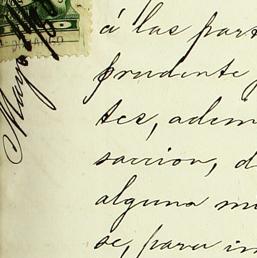 á las part
prudente
tes, adem
saccion, d
alguna m
se, para in
Mayo